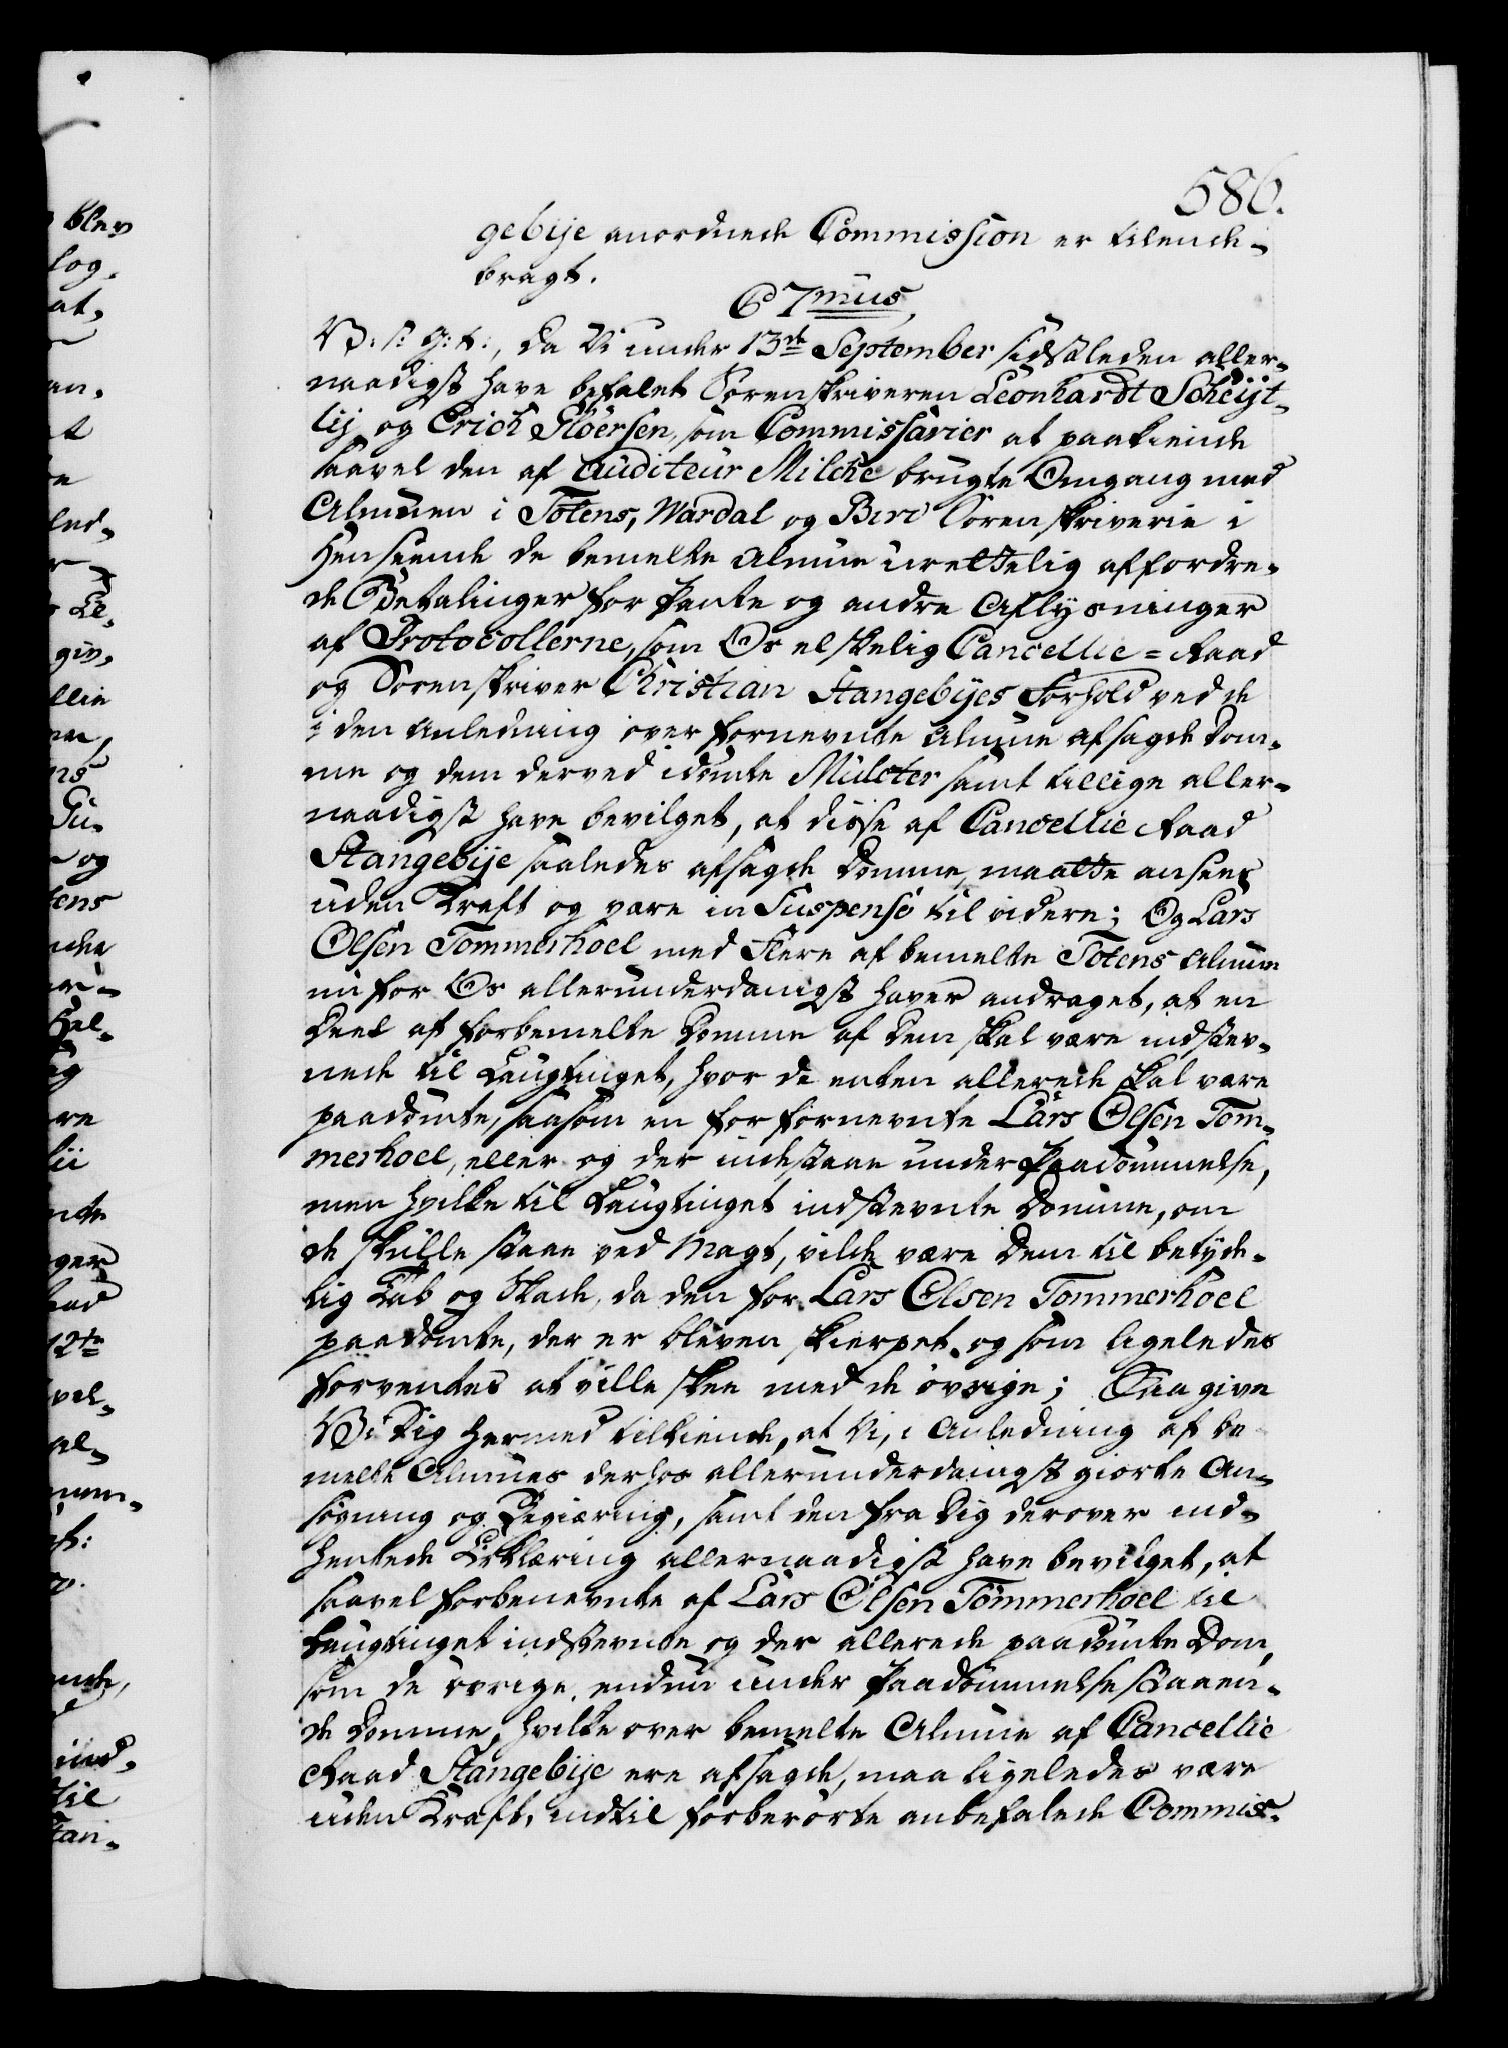 586.
gebije anordnede Commission er tilende-
bragt.
67mus,
V: S: G: T:, da Vi under 13de September sidstleden aller-
naadigst have befalet Sorenskriveren Leonhardt Scheijt-
lij og Erich Floersen, som Commissarier at paakiende
saavel den af Auditeur Milche brugte Omgang med
Almuen i Totens, Wardal og Birie Sorenskriverie i
Henseende de bemelte Almue urettelig affordre-
de Betalinger for Pante og andre Aflysninger
af Protocollerne, som Os elskelig Cancellie-Raad
og Sorenskriver Christian Stangebijes Forhold ved de
i den Anledning over fornevnte Almue afsagde Dom-
me og dem derved idömte Mulcter samt tillige aller-
naadigst have bevilget, at disse af Cancellie Raad
Stangebije saaledes afsagde Domme, maatte ansees
uden Kraft og være in Suspenso til videre; Og Lars
Olsen Tommerhoel med Flere af bemelte Totens Almue
nu for Os allerunderdanigst haver andraget, at en
Deel af forbemelte Domme af dem skal være indstev-
nede til Laugtinget, hvor de enten allerede skal være
paadömte, saasom en for fornevnte Lars Olsen Tom-
merhoel, eller og der indestaae under Paadömmelse,
men hvilke til Laugtinget indstevnte Domme, om
de skulle staae ved Magt, vilde være dem til betyde-
lig Tab og Skade, da den for Lars Olsen Tommerhoel
paadömte, der er bleven skierpet, og som ligeledes
forventes at ville skee med de övrige; Saa give
Vi Dig hermed tilkiende, at Vi, i Anledning af be-
melte Almues derhos allerunderdanigst giorte An-
sögning og Begiæring, samt den fra Dig derover ind-
hentede Erklæring allernaadigst have bevilget, at
saavel forbenevnte af Lars Olsen Tommerhoel til
Laugtinget indstevnte og der allerede paadömte Dom,
som de övrige endnu under Paadömmelse staaen-
de Domme, hvilke over bemelte Almue af Cancellie
Raad Stangebije ere afsagde, maa ligeledes være
uden Kraft, indtil forberörte anbefalede Commis-